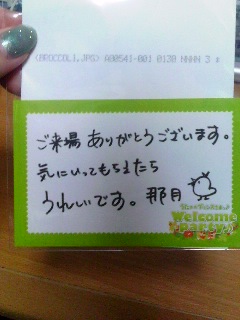 (BROCCOLI.JPG) A00541-001 0130 NNNN 3
ご来場 ありがとうございます。
気にいってもらえたら
うれしいです。那月
Welcome
Party